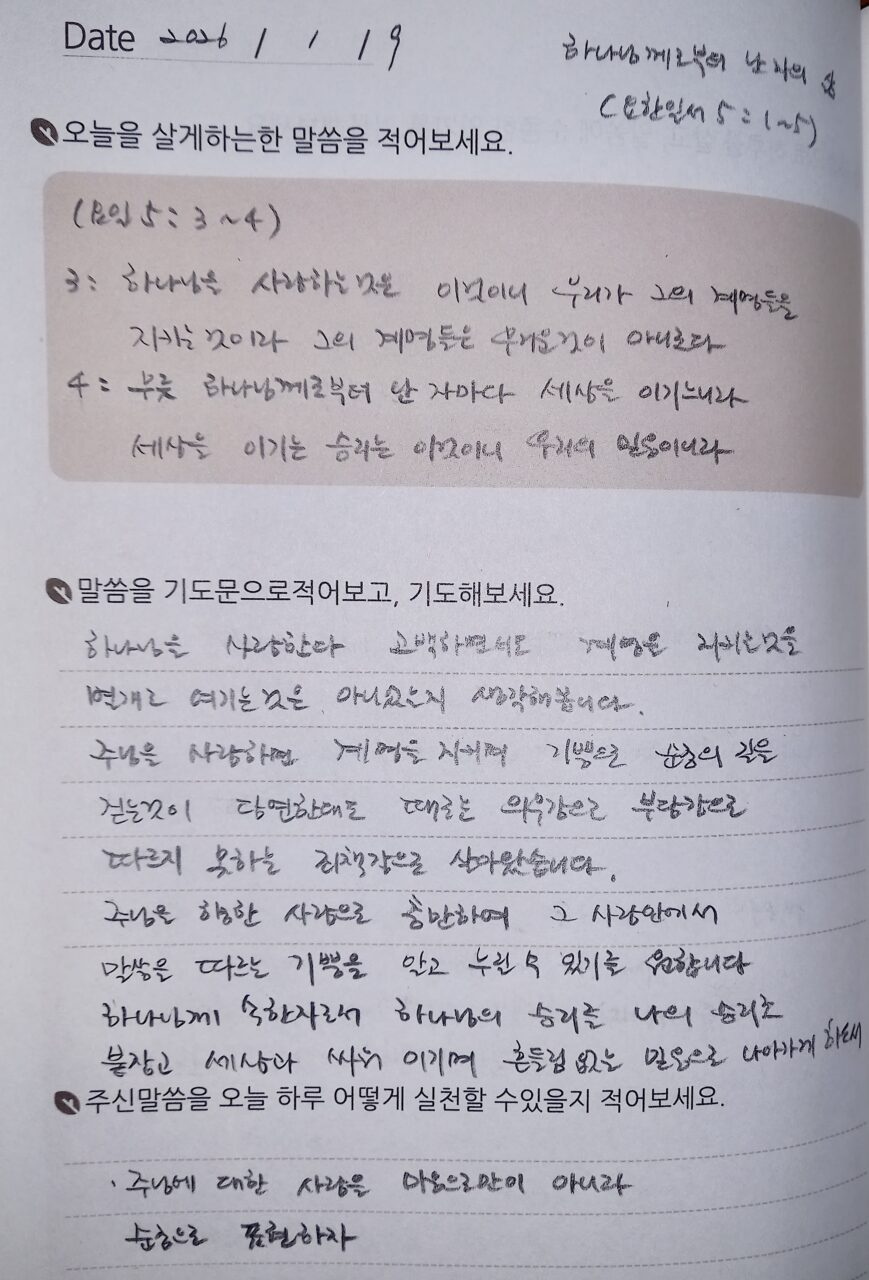 Date 2026 / 1 / 19
하나님께로부터 난 자의 삶
(요한일서 5:1~5)
오늘을 살게하는한 말씀을 적어보세요.
(요일 5:3~4)
3: 하나님을 사랑하는것은 이것이니 우리가 그의 계명들을
지키는것이라 그의 계명들은 무거운것이 아니로다
4: 무릇 하나님께로부터 난 자마다 세상을 이기느니라
세상을 이기는 승리는 이것이니 우리의 믿음이니라
말씀을 기도문으로적어보고, 기도해보세요.
하나님을 사랑한다 고백하면서도 계명은 지키는것을
별개로 여기는것은 아니었는지 생각해봅니다.
주님을 사랑하면 계명을 지키며 기쁨으로 순종의 길을
걷는것이 당연한대도 때로는 의무감으로 부담감으로
따르지 못하는 죄책감으로 살아왔습니다.
주님을 향한 사랑으로 충만하여 그 사랑안에서
말씀을 따르는 기쁨을 알고 누릴수 있기를 원합니다
하나님께 속한자로서 하나님의 승리를 나의 승리로
붙잡고 세상과 싸워 이기며 흔들림없는 믿음으로 나아가게 하소서
주신말씀을 오늘 하루 어떻게 실천할 수있을지 적어보세요.
· 주님에 대한 사랑을 마음으로만이 아니라
순종으로 표현하자